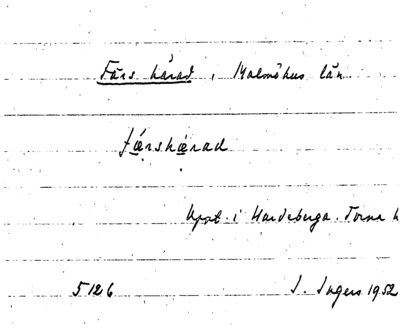 Färs härad, Malmöhus län
færshærad
Uppt. i Hardeberga. Torna h
5126 I. Ingers 1952